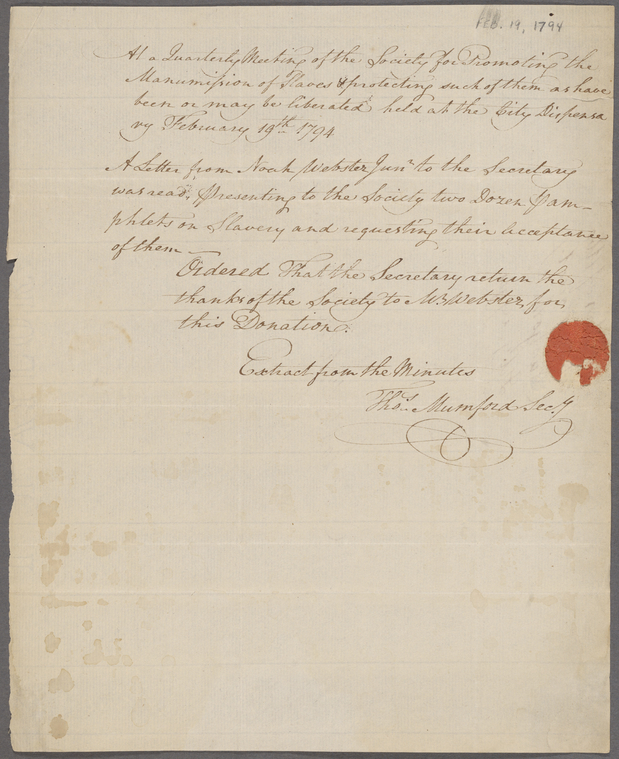 Feb. 19, 1794
At a Quarterly Meeting of the Society for Promoting the
Manumission of Slaves & protecting such of them as have
been or may be liberated held at the City Dispensa
ry February 19th 1794
A Letter from Noah Webster Junr to the Secretary
was read, presenting to the Society two Dozen Pam-
phlets on Slavery and requesting their acceptance
of them —
Ordered That the Secretary return the
thanks of the Society to Mr Webster for
this Donation.
Extract from the Minutes
Thos. Mumford Secy